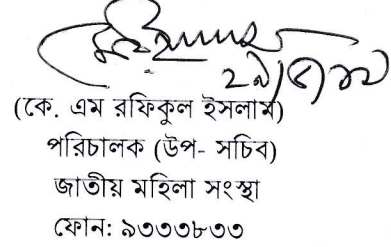 (কে. এম রফিকুল ইসলাম)
পরিচালক (উপ- সচিব)
জাতীয় মহিলা সংস্থা
ফোন: ৯৩৩৩৮৩৩